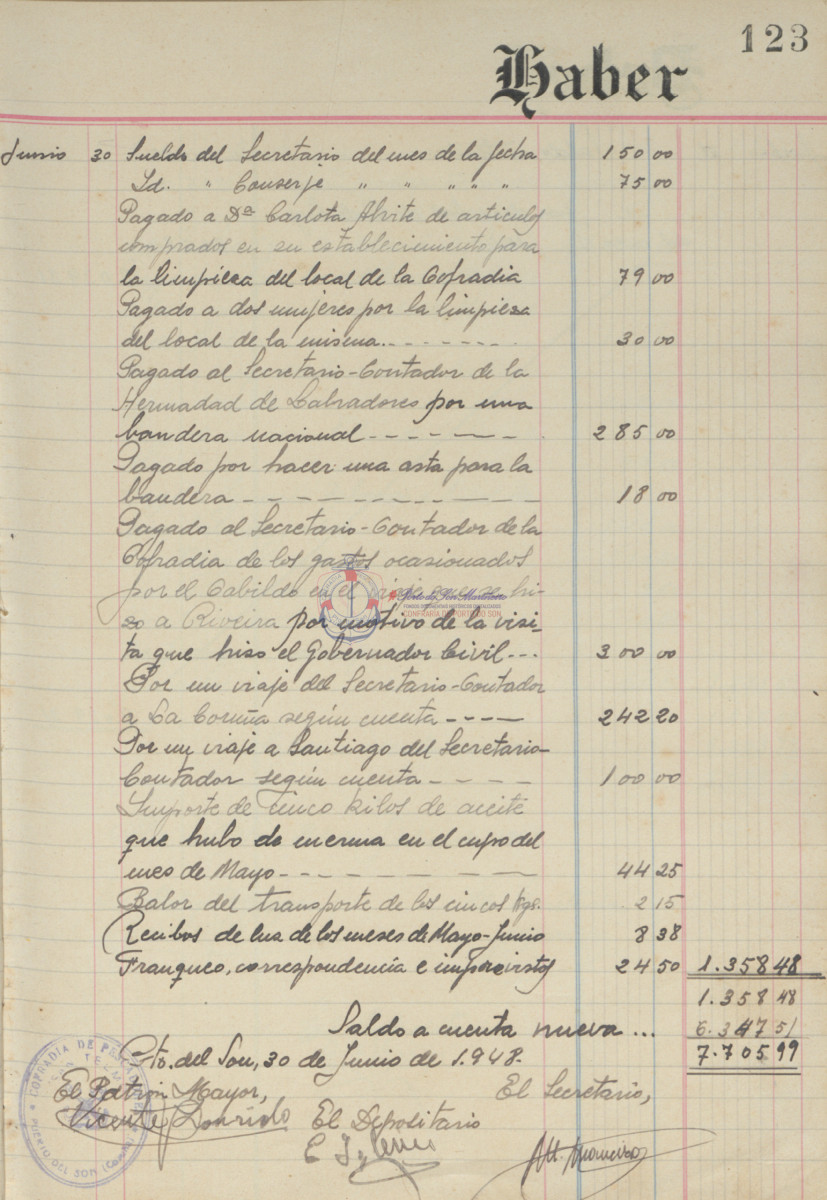 123
Haber
Junio 30 Sueldo del Secretario del mes de la fecha 150 00
Id. " Conserje " " " " " 75 00
Pagado a Dª Carlota Abite de articulos
comprados en su establecimiento para
la limpieza del local de la Cofradia 79 00
Pagado a dos mujeres por la limpieza
del local de la misma.. - - - - - - - 30 00
Pagado al Secretario-Contador de la
Hermadad de Labradores por una
bandera nacional - - - - - - 285 00
Pagado por hacer una asta para la
bandera - - - - - - - - - - 18 00
Pagado al Secretario-Contador de la
Cofradia de los gastos ocasionados
por el Cabildo en el viaje que se hi-
zo a Riveira por motivo de la visi-
ta que hiso el Gobernador Civil - - . 300 00
Por un viaje del Secretario-Contador
a La Coruña según cuenta - - - - 242 20
Por un viaje a Santiago del Secretario-
Contador según cuenta - - - - 100 00
Importe de cinco kilos de aceite
que hubo de merma en el cupo del
mes de Mayo - - - - - - - 44 25
Balor del transporte de los cincos kgs. 2 15
Recibos de luz de los meses de Mayo-Junio 8 38
Franqueo, correspondencia e imprevistos 24 50 1.358 48
1.358 48
Saldo a cuenta nueva ... 6.347 51
Pto. del Son, 30 de Junio de 1.948. 7.705 99
El Patrón Mayor, El Secretario,
Vicente
El Depositario
E Iglesias
COFRADIA DE
SAN TELMO
PUERTO DEL SON (Coruña)
Porto do Son Marítimo
CONFRARÍA DE PORTO DO SON